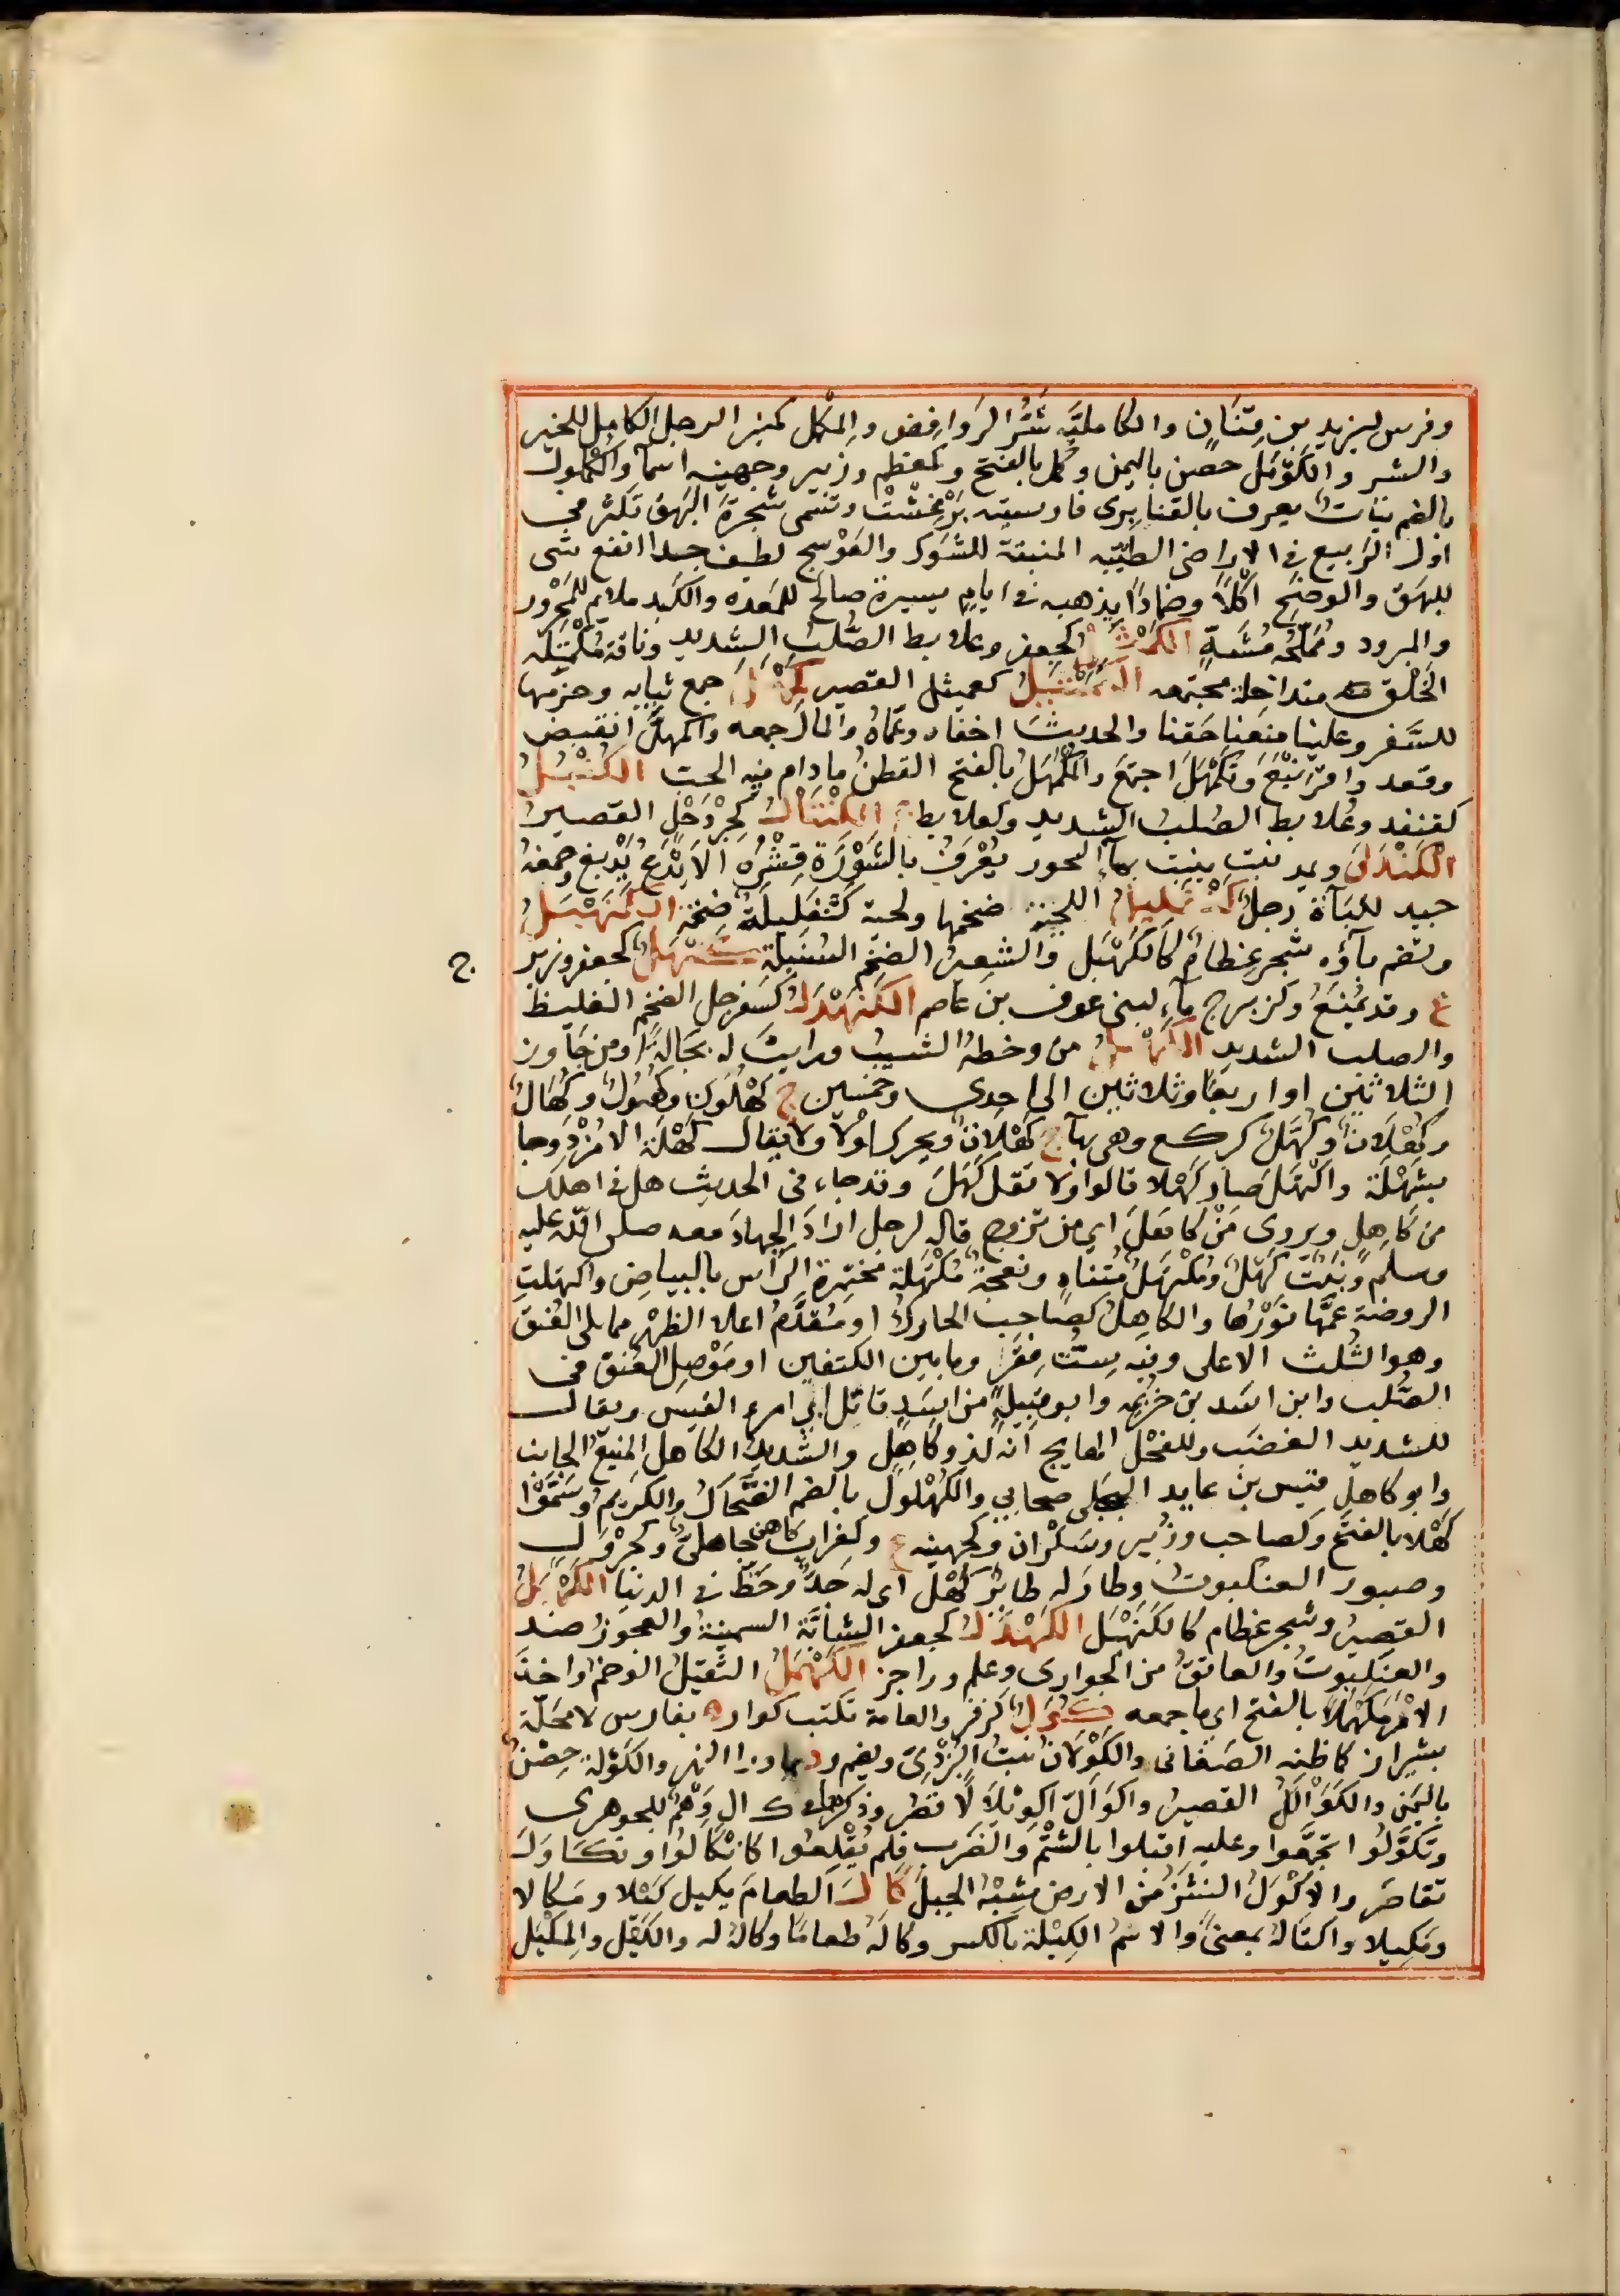 وفرس ليزيد بن قنان والكاملية شر الروافض والمكمل كمنبر الرجل الكامل للخير
والشر والكومل حصن باليمن وكمل بالفتح وكمعظم وزبير وجهينة اسمآ والكملول
بالضم نبات يعرف بالقنابرى فارسيته برغشت وتسمى شجرة البهق تكثر في
اول الربيع في الاراضى الطيبه المنبتة للشوك والعوسج لطيف جدا انفع شى
للبهق والوضح اكلا وضمادا يذهبه في ايام يسيرة صالح للمعده والكبد ملايم للمحرور
والمبرود ومملحه مشهّ الكمثل كجعفر وعلابط الصلب الشديد وناقة مكمثله
الخلق متداخلة مجتمعه الكمثيل كعميثل القصير كمهل جمع ثيابه وحزمها
للسفر وعلينا منعنا حقنا والحديث اخفاه وعماه والمال جمعه واكمهل انقبض
وقعد وافرنبع وتكمهل اجتمع والمكمهل بالفتح القطن مادام فيه الحب الكنبل
كقنفد وعلابط الصلب الشديد وكعلابط ع الكنتال كجردحل القصير
الكندلى ويمد نبت ينبت بمآء البحور يعرف بالشورة قشره الايدع يدبغ وصمغه
جيد للبآة رجل كنفليل اللحية ضخمها ولحية كنفليلة ضخمة الكنهبل
وتضم بآؤه شجر عظام كالكهبل والشعير الضخم السنبلة كنهل كجعفر وزبرج
ع وقد يمنع وكزبرج مآء لبنى عوف بن عاصم الكنهدل كسفرجل الضخم الغليظ
والصلب الشديد الكهل من وخطه الشيب ورايت له بجالة او من جاوز
الثلاثين او اربعا وثلاثين الى احدى وخمسين ج كهلون وكهول وكهال
وكهلان وكهل كركع وهى بهآ ج كهلات ويحرك اولا ولا يقال كهلة الا مزدوجا
بشهلة واكتهل صار كهلا قالوا ولا تقل كهل وقد جاء في الحديث هل في اهلك
من كاهل ويروى من كاهل اى من تزوج قاله لرجل اراد الجهاد معه صلى الله عليه
وسلم ونبت كهل ومكتهل متناه ونعجة مكتهلة مختمرة الراس بالبياض واكتهلت
الروضة عمها نورها والكاهل كصاحب الحارك او مقدم اعلا الظهر مما يلى العنق
وهو الثلث الاعلى وفيه ست فقر وما بين الكتفين او موصل العنق في
الصلب وابن اسد بن خزيمه وابو قبيلة من اسد قاتلى ابى امرء القيس ويقال
للشديد الغضب وللفحل الهايج انه لذو كاهل والشديد الكاهل المنيع الجانب
وابو كاهل قيس بن عايد البجلى صحابي والكهلول بالضم الضحاك والكريم وسموا
كهلا بالفتح وكصاحب وزبير وسكران وكجهينه ع وكغراب كاهن جاهلى وكجرول
وصبور العنكبوت وطار له طاير كهل اى له جد وحظ في الدنيا الكهبل
القصير وشجر عظام كالكنهبل الكهدل كجعفر الشابة السمينة والعجوز ضد
والعنكبوت والعاتق من الجوارى وعلم وراجز الكهمل الثقيل الوخم واخذ
الامر مكهملا بالفتح اى باجمعه كول كزفر والعامة تكتب كوار ة بفارس لا محلة
بشيراز كما ظنه الصغانى والكولان نبت البردى ويضم ود بما ورا النهر والكولة حصن
باليمن والكوالل القصير واكوال اكويلالا قصر وذكره في ك ال وهم للجوهرى
وتكولوا تجمعوا وعليه اقبلوا بالشتم والضرب فلم يقلعوا كانكالوا وتكاول
تقاصر والاكول النشز من الارض شبه الجبل كال الطعام يكيل كيلا ومكالا
ومكيلا واكتاله بمعنى والاسم الكيلة بالكسر وكاله طعاما وكال له والكيل والمكيل
ج